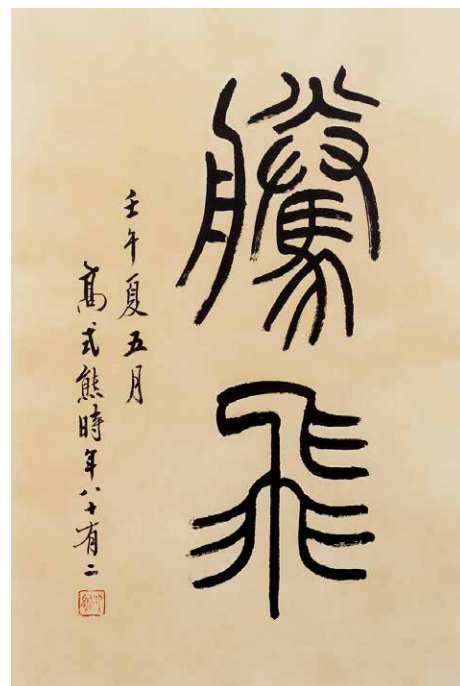 騰飛
壬午夏五月
高式熊時年八十有二